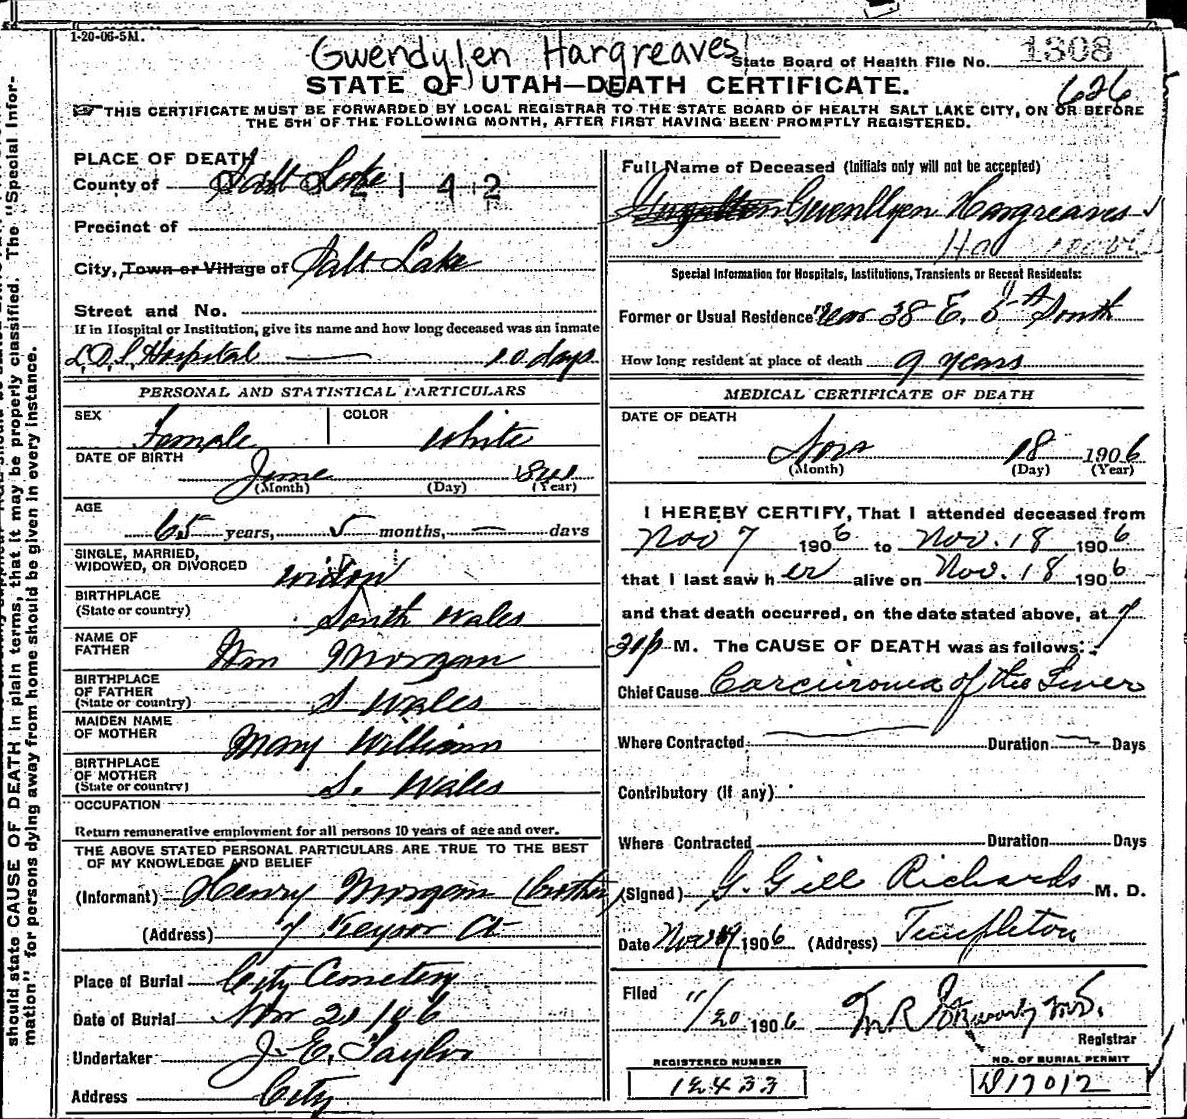 1-20-06-5M.
Gwendylen Hargreaves
State Board of Health File No. 1308
STATE OF UTAH—DEATH CERTIFICATE. 626
THIS CERTIFICATE MUST BE FORWARDED BY LOCAL REGISTRAR TO THE STATE BOARD OF HEALTH SALT LAKE CITY, ON OR BEFORE
THE 5TH OF THE FOLLOWING MONTH, AFTER FIRST HAVING BEEN PROMPTLY REGISTERED.
PLACE OF DEATH
County of Salt Lake 142
Precinct of
City, Town or Village of Salt Lake
Street and No.
If in Hospital or Institution, give its name and how long deceased was an inmate
L.D.S. Hospital — 10 days
PERSONAL AND STATISTICAL PARTICULARS
SEX Female COLOR White
DATE OF BIRTH June 1841
(Month) (Day) (Year)
AGE
65 years, 5 months, — days
SINGLE, MARRIED,
WIDOWED, OR DIVORCED widow
BIRTHPLACE
(State or country) South Wales
NAME OF
FATHER Wm Morgan
BIRTHPLACE
OF FATHER
(State or country) S Wales
MAIDEN NAME
OF MOTHER Mary William
BIRTHPLACE
OF MOTHER
(State or country) S. Wales
OCCUPATION
Return remunerative employment for all persons 10 years of age and over.
THE ABOVE STATED PERSONAL PARTICULARS ARE TRUE TO THE BEST
OF MY KNOWLEDGE AND BELIEF
(Informant) Henry Morgan (brother)
(Address) 7 Ct
Place of Burial City Cemetery
Date of Burial Nov 21 1906
Undertaker J. E. Taylor
Address City
Full Name of Deceased (Initials only will not be accepted)
Gwenllyen Hargreaves
Special Information for Hospitals, Institutions, Transients or Recent Residents:
Former or Usual Residence Rear 38 E. 5th South
How long resident at place of death 9 years
MEDICAL CERTIFICATE OF DEATH
DATE OF DEATH
Nov 18 1906
(Month) (Day) (Year)
I HEREBY CERTIFY, That I attended deceased from
Nov 7 1906 to Nov. 18 1906
that I last saw her alive on Nov. 18 1906
and that death occurred, on the date stated above, at 7
M. The CAUSE OF DEATH was as follows:
Chief Cause Carcinoma of the Liver
Where Contracted Duration Days
Contributory (if any)
Where Contracted Duration Days
(Signed) G. Gill Richards M. D.
Date Nov 19 1906 (Address) Templeton
Filed 11/20 1906
Registrar
REGISTERED NUMBER
12433
NO. OF BURIAL PERMIT
D17012
should state CAUSE OF DEATH in plain terms, that it may be properly classified. The "Special Infor-
mation" for persons dying away from home should be given in every instance.